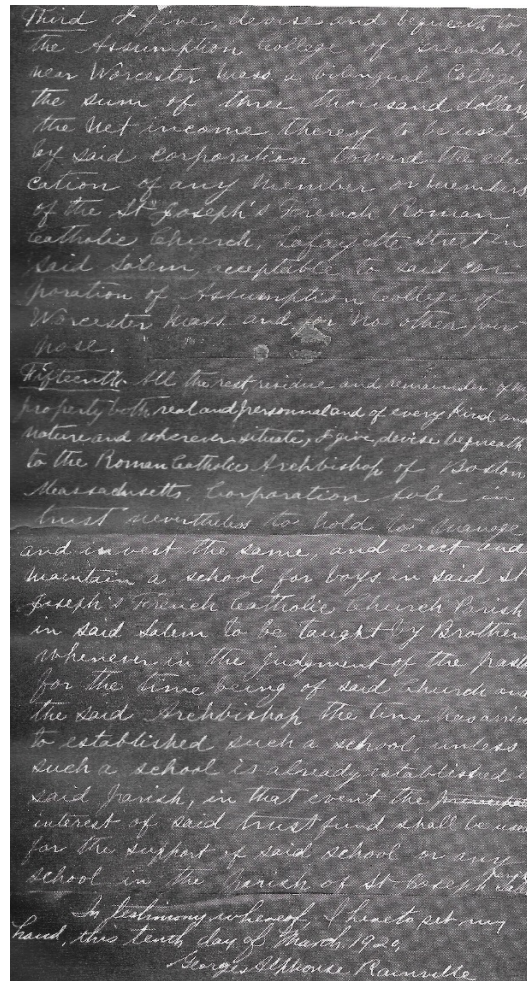 Third I give, devise and bequeath to
the Assumption College of Greendale
near Worcester Mass. a bilingual College,
the sum of three thousand dollars
the net income thereof to be used
by said corporation toward the edu
cation of any member or members
of the St Joseph's French Roman
Catholic Church, Lafayette Street in
said Salem, acceptable to said cor
poration of Assumption College of
Worcester Mass and for no other pur
pose.
Fifteenth All the rest, residue and remainder of my
property both real and personnal and of every kind and
nature and wherever situate, I give, devise bequeath
to the Roman Catholic Archbishop of Boston
Massachusetts, Corporation sole in
trust nevertheless to hold to manage
and invest the same, and erect and
maintain a school for boys in said St
Joseph's French Catholic Church Parish
in said Salem to be taught by Brother
whenever in the judgment of the pasto
for the time being of said church and
the said Archbishop the time has arriv
to established such a school, unless
such a school is already established
said parish, in that event the
interest of said trust fund shall be used
for the support of said school or any
school in the parish of St Joseph
In testimony whereof, I hereto set my
hand, this tenth day of March 1920,
Georges Alphonse Rainville